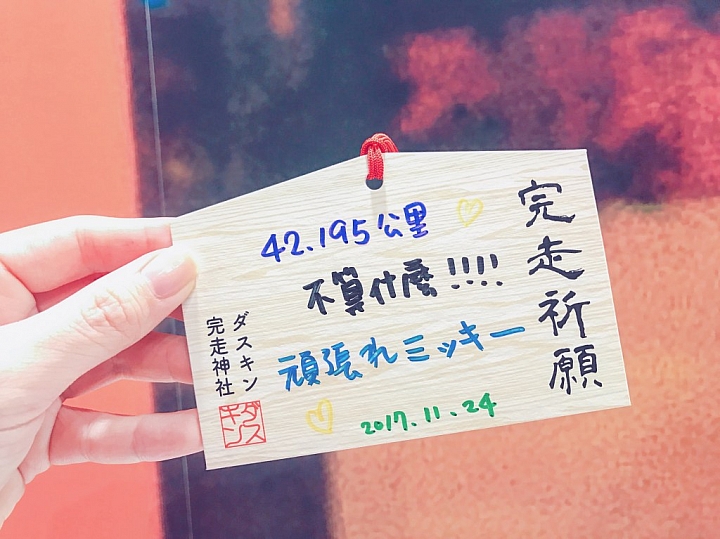 完走祈願
42.195公里
不算什麼!!!!
頑張れミッキー
2017.11.24
ダスキン
完走神社
ダスキン